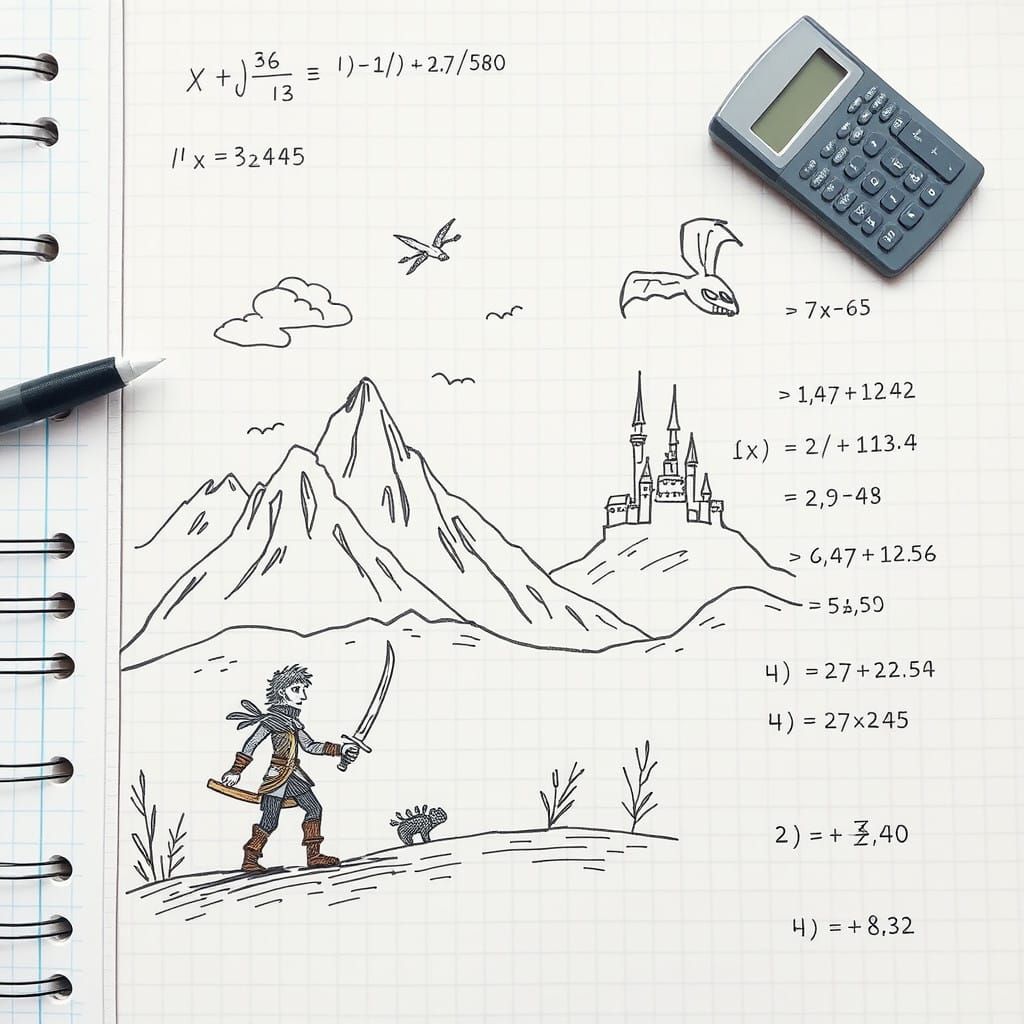 X + 36/13 ≡ 1)-1/) + 2.7/580
11 x = 32445
> 7x-65
> 1,47+1242
(x) = 2/+113.4
= 2,9-48
> 6,47+12.56
4) = 27+22.54
4) = 27x245
4) = +8,32